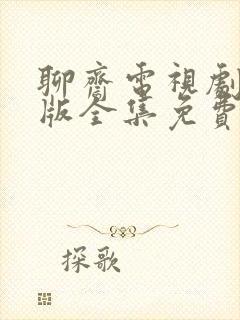 聊齋電視劇
版全集免費
探歌